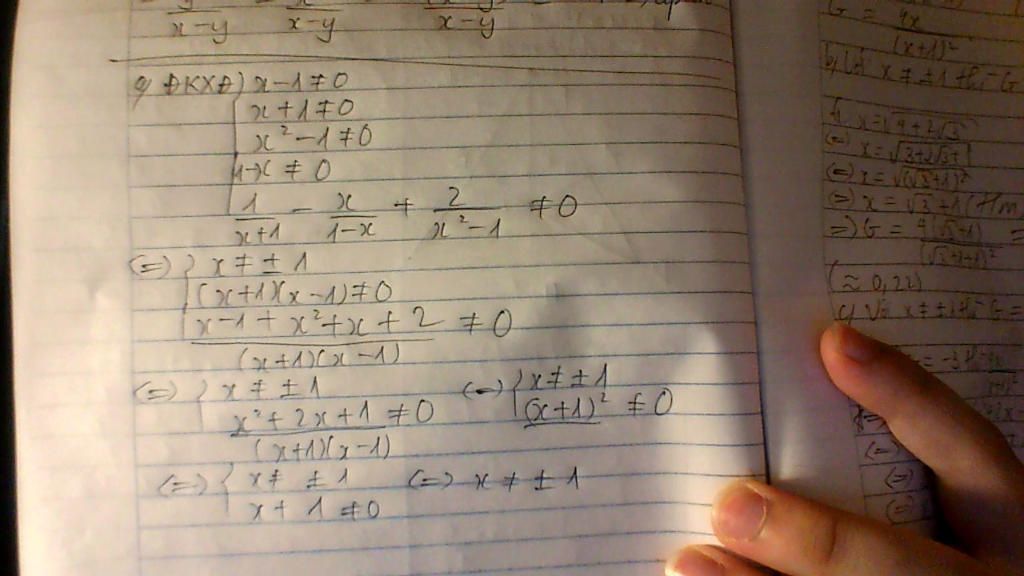 x-y x-y x-y
a) ĐKXĐ) x-1≠0
x+1≠0
x²-1≠0
1-x≠0
1/(x+1) - x/(1-x) + 2/(x²-1) ≠0
(=) { x≠±1
(x+1)(x-1)≠0
(x-1+x²+x+2)/((x+1)(x-1)) ≠0
(=) { x≠±1 (=) { x≠±1
(x²+2x+1)/((x+1)(x-1)) ≠0 (x+1)² ≠0
(=) { x≠ ±1 (=) x≠±1
x+1≠0
G = 4x/(x+1)²
x≠±1 thì G
x=√(4+2√3)
(=) x=√(3+2√3+1
(=) x=√(√3+1)²
(=) x=√3+1 (tm
=) G = 4(√3+1)/(√3+1+1)² =
(≈0,22)
c) Với x≠±1 thì G=
(=)
(=)
(=)